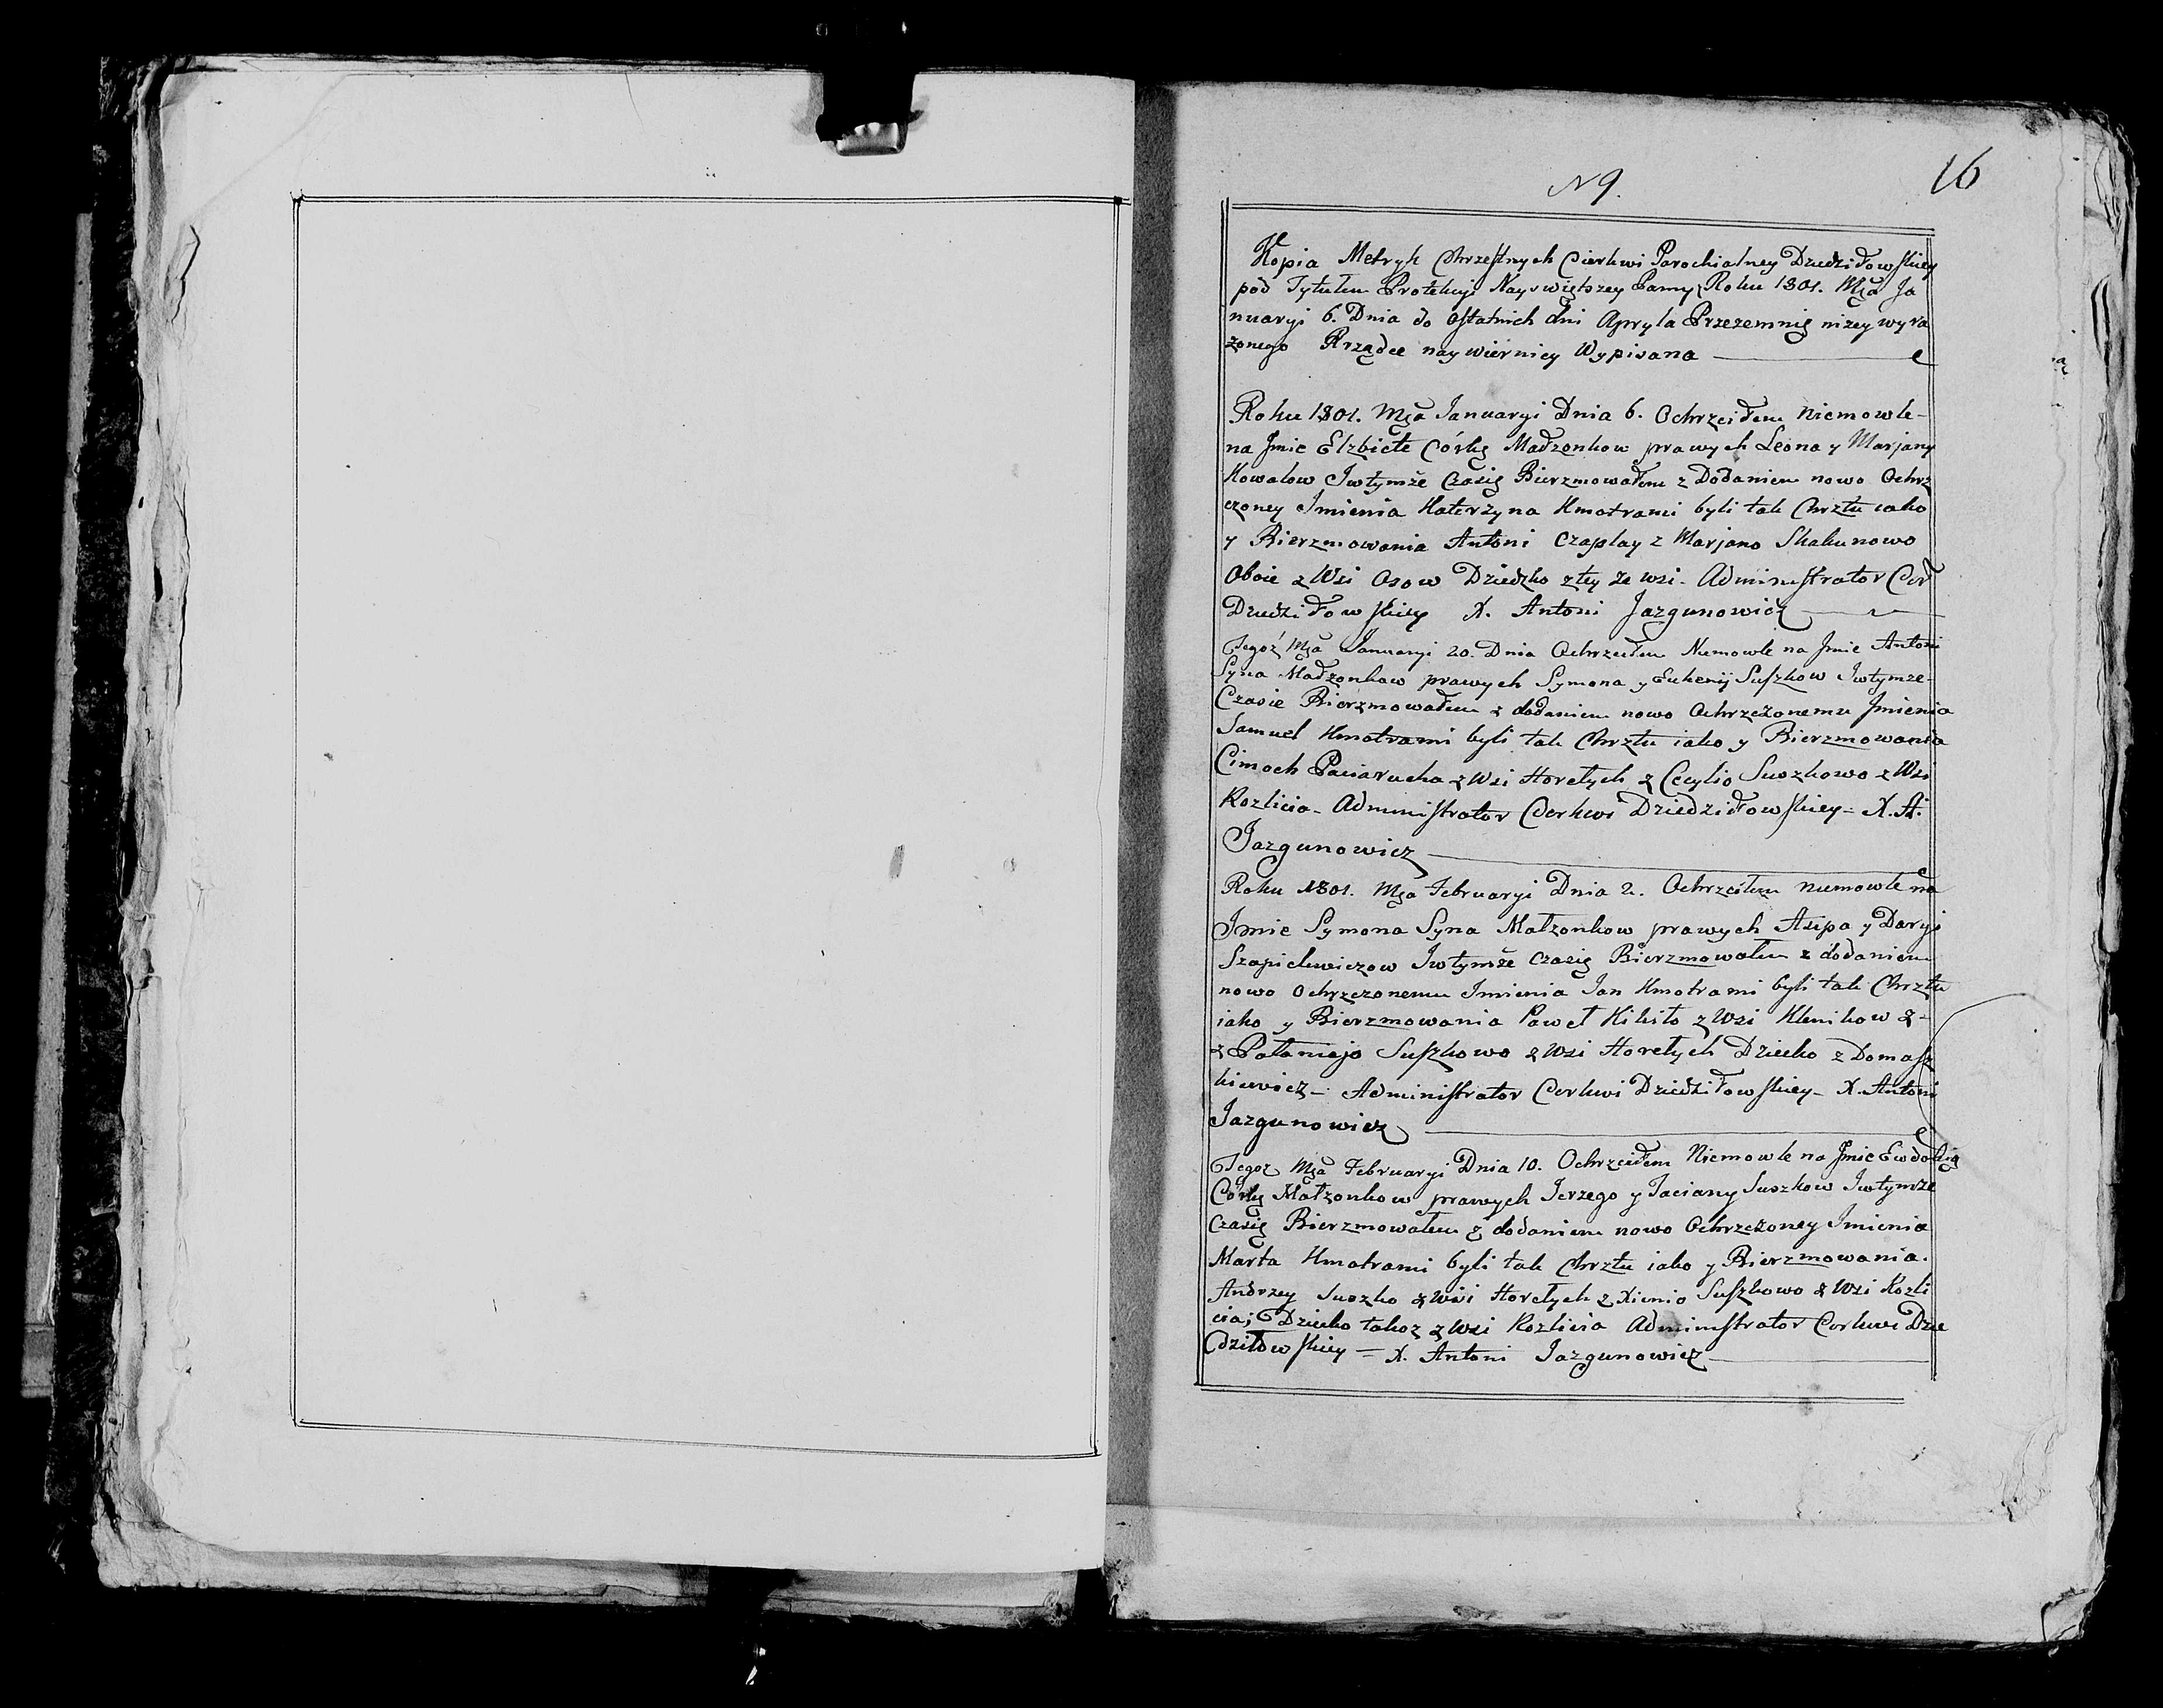 N 9.
16
Kopia Metryk Chrzestnych Cierkwi Parochialney Dziedziłowskiey
pod Tytułem Protekcyi Nayswiętszey Panny Roku 1801. Mĝa Ja
nuaryi 6. Dnia do ostatnich dni Apryla Przezemnię niżey wyra
żonego Rządce naywierniey Wypisana
Roku 1801. Mĝa Januaryi Dnia 6. Ochrzciłem Niemowle-
na Jmie Elzbiete Córkę Madzonkow prawych Leona y Marjany
Kowalow Jwtymże Czasię Bierzmowałem z Dodaniem nowo Ochrz
czoney Jmienia Katerzyna Kmotrami byli tak Chrztu iako
y Bierzmowania Antoni Czaplay z Marjano Skakunowo
Oboie z Wsi Osow Dziedzko z tey że wsi. Administrator Cer
Dziedziłowskiey X. Antoni Jazgunowicz
Tegoż Mĝa Januaryi 20. Dnia Ochrzciłem Niemowle na Jmie Antoni
Syna Madzonkow prawych Symona y Euhenij Suszkow Jwtymze-
Czasie Bierzmowałem z dodaniem nowo Ochrzczonemu Jmienia
Samuel Kmotrami byli tak Chrztu iako y Bierzmowania
Cimoch Paciarucha z Wsi Horełych z Cecylio Suszkowo z Wsi
Kozlicia- Administrator Cerkwi Dziedziłowskiey- X. A.
Jazgunowicz
Roku 1801. Mĝa Februaryi Dnia 2. Ochrzciłem niemowle na
Jmie Symona Syna Małzonkow prawych Asipa y Daryi
Szapielewiczow Jwtymże Czasię Bierzmowałem z dodaniem
nowo Ochrzczonemu Jmienia Jan Kmotrami byli tak Chrztu
iako y Bierzmowania Paweł Kikiło z Wsi Klenikow z-
z Połoniejo Suszkowo z Wsi Horełych Dziecko z Domasz
kiewicz- Administrator Cerkwi Dziedziłowskiey- X. Antoni
Jazgunowicz
Tegoz Mĝa Februaryi Dnia 10. Ochrzciłem Niemowle na Jmie Ewdokię
Córkę Małzonkow prawych Jerzego y Taciany Suszkow Jwtymze
Czasię Bierzmowałem z dodaniem nowo Ochrzczoney Jmienia
Marta Kmotrami byli tak Chrztu iako y Bierzmowania.
Andrzey Suszko z Wsi Horełych z Xienio Suszkowo z Wsi Kozli
cia; Dziecko takoz z Wsi Kozlicia Administrator Cerkwi Dzie
dziłowskiey = X. Antoni Jazgunowicz